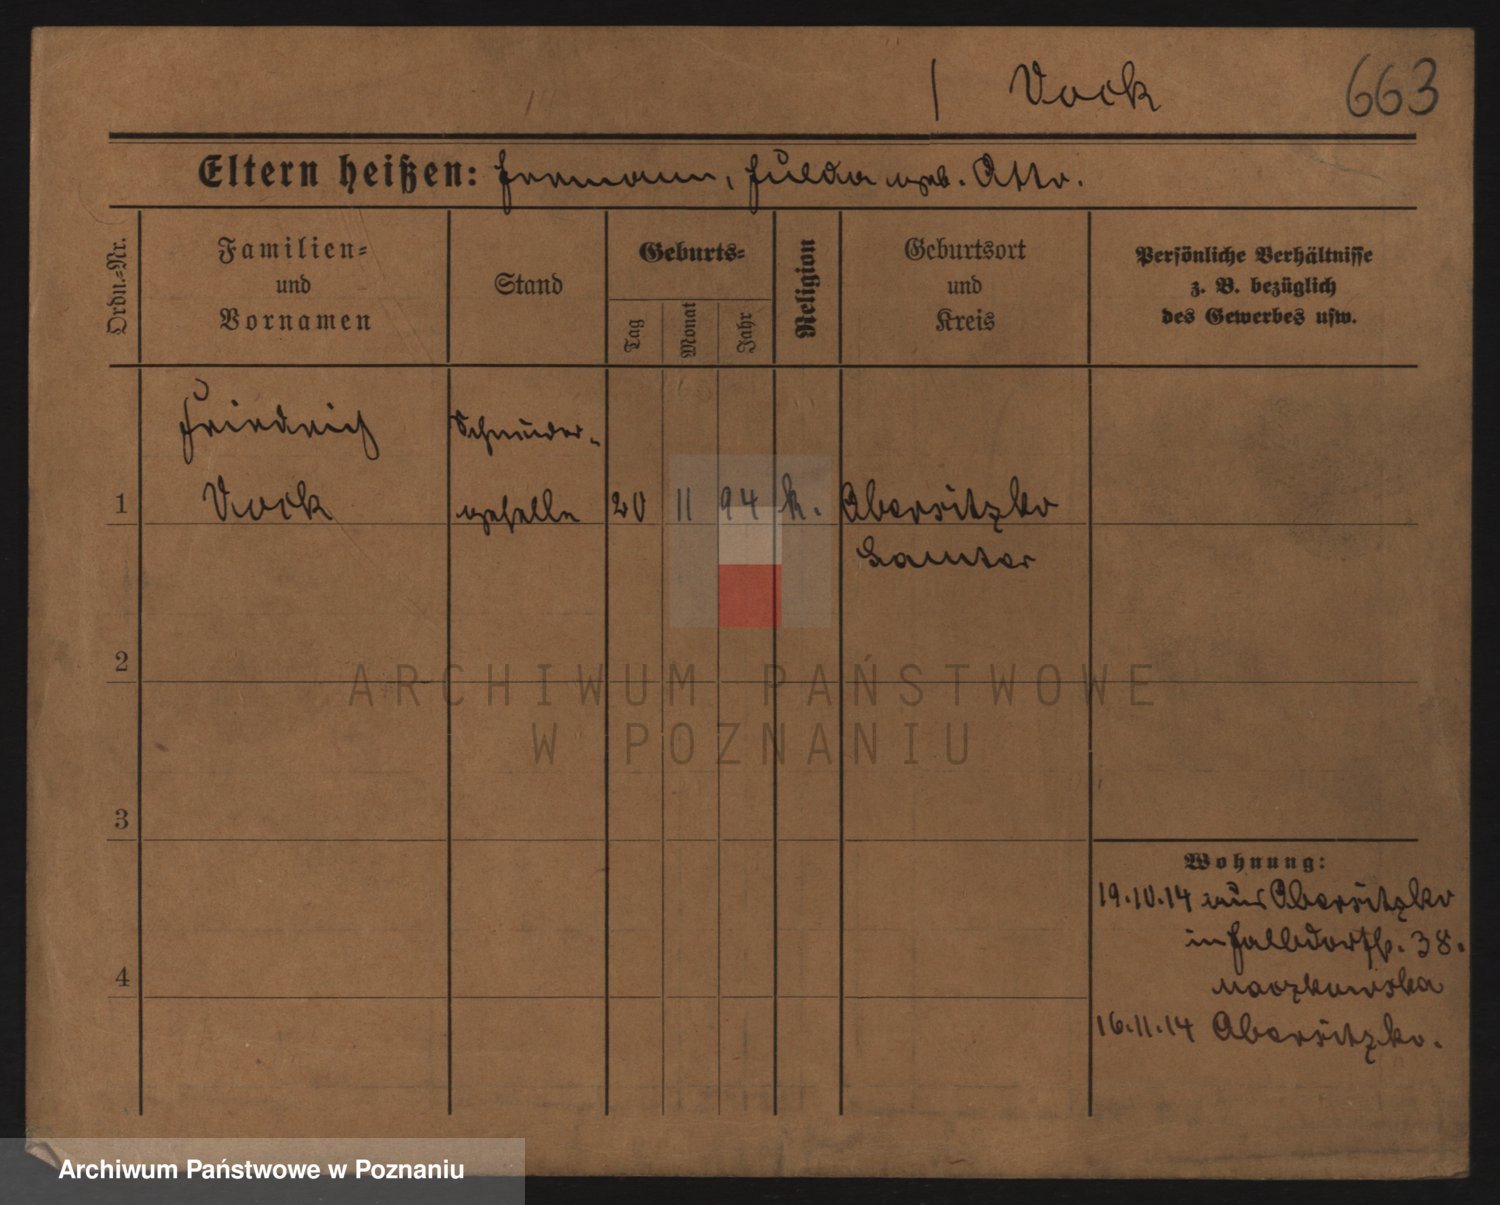 Vock 663
Eltern heißen: Hermann, Hulda geb. Otto.
Ordn.-Nr.
Familien- und Vornamen
Stand
Geburts-
Tag
Monat
Jahr
Religion
Geburtsort und Kreis
Persönliche Verhältnisse z. B. bezüglich des Gewerbes usw.
Friedrich Schneider-
1 Vock geselle 20 11 94 k. Obersitzko
Samter
2
ARCHIWUM PAŃSTWOWE
W POZNANIU
3
Wohnung:
19.10.14 aus Obersitzko
in Halbdorfstr. 38.
4
16.11.14 Obersitzko.
Archiwum Państwowe w Poznaniu